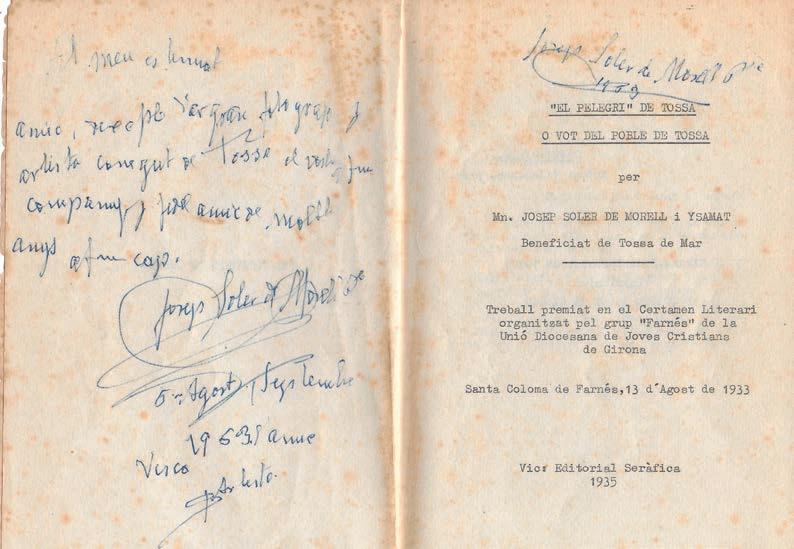 Al meu estimat
amic, recople l'gran fotograf y
artista conegut de Tossa el vostre afm
company y fidel amic de molts
anys afm cap.
Josep Soler de Morell Pvre
5 Agost, Septembre
1963. l'amic
Visca
Artista.
Josep Soler de Morell Pvre
1963
"EL PELEGRI" DE TOSSA
O VOT DEL POBLE DE TOSSA
per
Mn. JOSEP SOLER DE MORELL i YSAMAT
Beneficiat de Tossa de Mar
Treball premiat en el Certamen Literari
organitzat pel grup "Farnés" de la
Unió Diocesana de Joves Cristians
de Girona
Santa Coloma de Farnés,13 d'Agost de 1933
Vic: Editorial Seràfica
1935